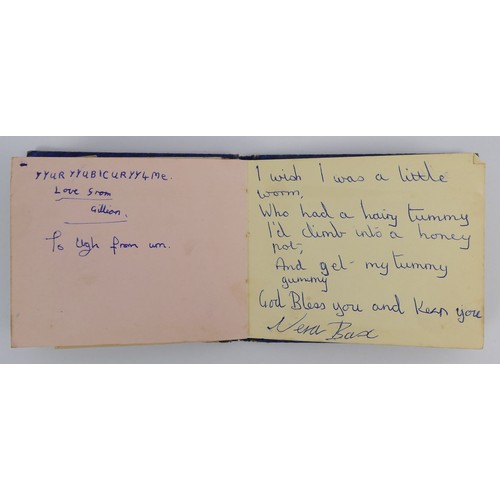 YYURYYUBICURYY4ME.
Love from
Gillian.
To Ugh from um.
I wish I was a little
worm,
Who had a hairy tummy
I'd climb into a honey
pot,
And get my tummy
gummy
God Bless you and Keep you
Nera Bax